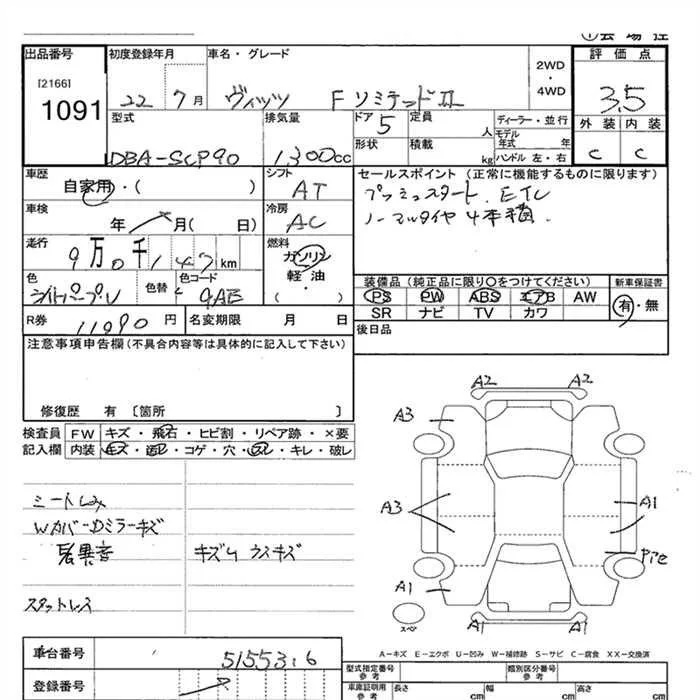 ①会場控
出品番号
[2166]
1091
初度登録年月
22 7月
車名・グレード
ヴィッツ F リミテッドII
2WD
・
4WD
評価点
3.5
外装 内装
C C
型式
DBA-SCP90
排気量
1300cc
ドア 5
定員 人
形状
積載 kg
ディーラー・並行
モデル年式 年
ハンドル 左・右
車歴
自家用・( )
シフト
AT
セールスポイント (正常に機能するものに限ります)
プッシュスタート、ETC
ノーマルタイヤ 4本積
車検
年 月( 日)
冷房
AC
走行
9万0千147km
燃料
ガソリン
軽・油
( )
色
ライトパープル
色替
色コード
9AE
装備品 (純正品に限り〇をつけてください)
PS PW ABS エアB AW
SR ナビ TV カワ
新車保証書
有・無
R券 11990円
名変期限 月 日
後日品
注意事項申告欄(不具合内容等は具体的に記入して下さい)
修復歴 有 〔箇所 〕
検査員
記入欄
FW キズ・飛石・ヒビ割・リペア跡・×要
内装 キズ・汚レ・コゲ・穴・スレ・キレ・破レ
シートしみ
WAバードアミラーキズ
キズ凹 ウスキズ
スタットレス
A2 A2
A3
A3
A1
A1
A1 A1
スペア
A－キズ E－エクボ U－凹み W－補修跡 S－サビ C－腐食 XX－交換済
車台番号
5155316
登録番号
型式指定番号
参考
類別区分番号
参考
車庫証明用
参考
長さ cm
幅 cm
高さ cm